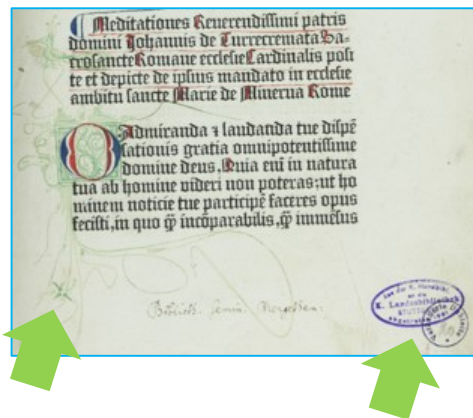 Meditationes Reuerendissimi patris
domini Johannis de Turrecremata Sa-
crosancte Romane ecclesie Cardinalis posi
te et depicte de ipsius mandato in ecclesie
ambitu sancte Marie de Minerua Rome
O Admiranda ⁊ laudāda tue dispē
sationis gratia omnipotentissime
domine deus. Quia eni in natura
tua ab homine videri non poteras; ut ho
minem noticie tue participē faceres opus
fecisti, in quo q̄ incōparabilis, q̄ immēsus
Biblioth. Semin.
an die
K. Landesbibliothek
STUTTGART